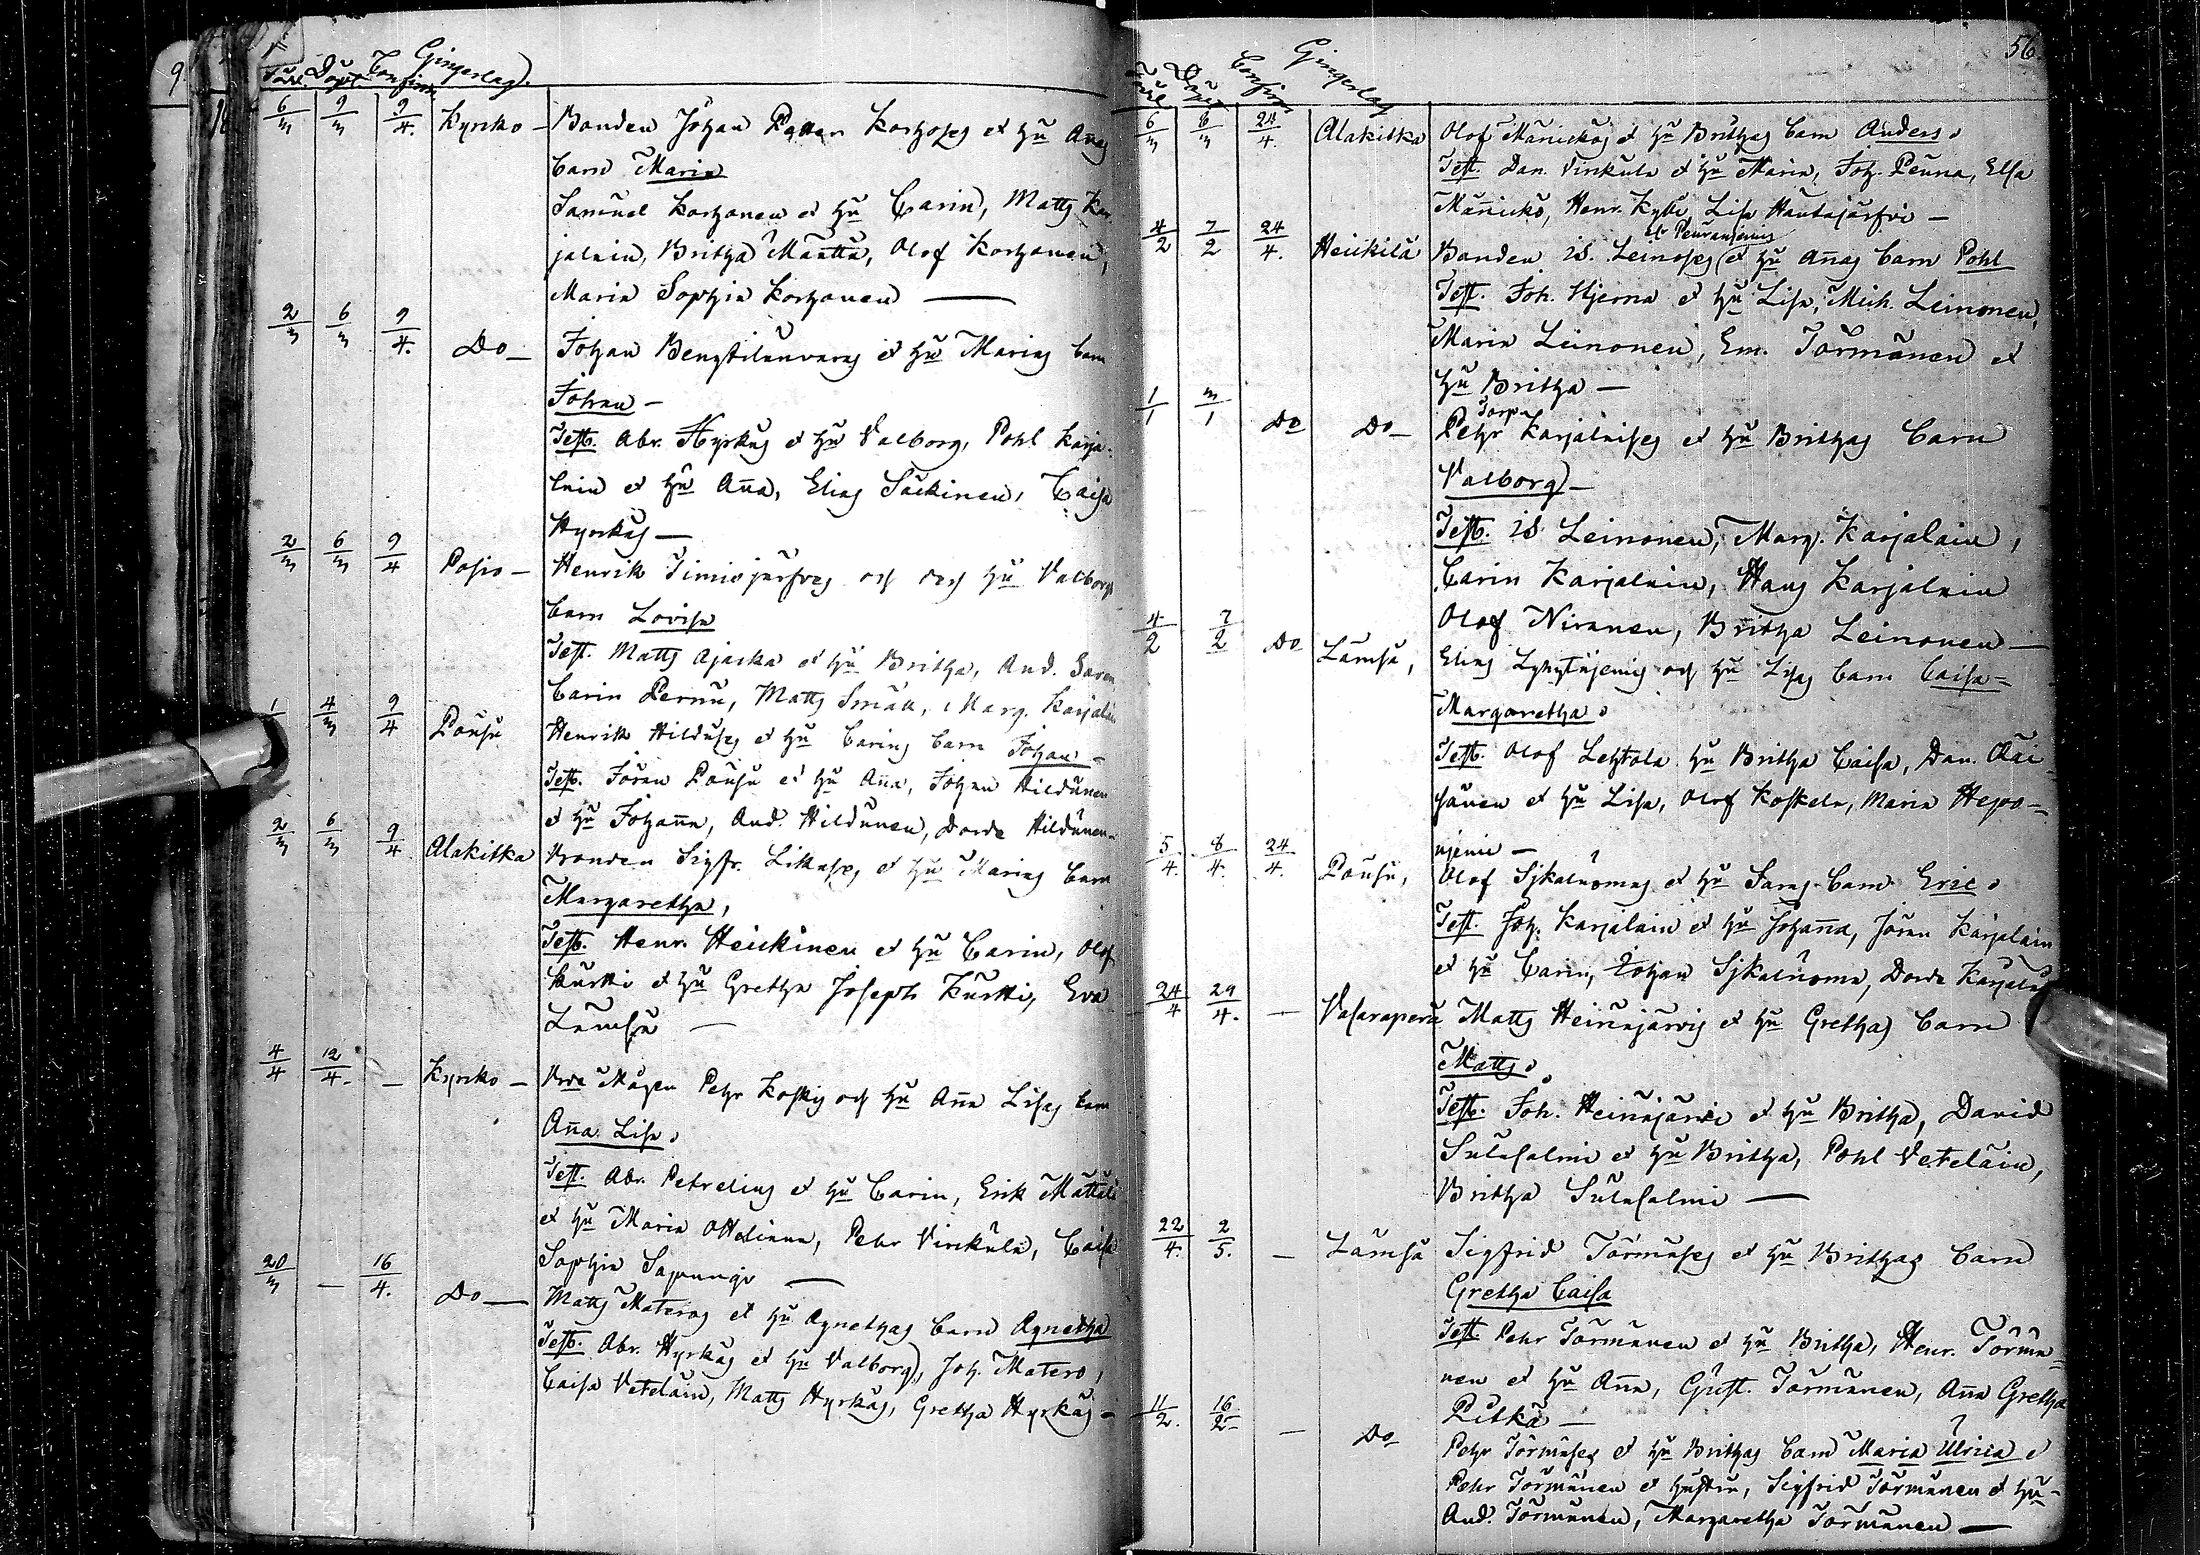 9.
Född. Döpt. Confirm. Gingerlag.
6/3 9/3 9/4. Kyrko – Bonden Johan Korhoses et Hu Annas
barn Maria
Samuel Korhonen et Hu Carin, Matts Kar-
jalain, Britha Määttä, Olof Korhonen,
Maria Sophia Korhonen —
2/3 6/3 9/4. Do – Johan et Hu Marias barn
Johan –
Test. Abr. Hyrkäs et Hu Valborg, Pohl Karja-
lain et Hu Anna, Elias Säckinen, Caisa
Hyrkäs —
2/3 6/3 9/4 Posio – Henrik Timisjärfves och Hu Valborgs
barn Lovisa
Test. Matts Ajaska et Hu Britha, And.
Carin Pernu, Matts Marg. Karjalain
1 4/3 9/4 Pousu Henrik Hilduses et Hu Carins barn Johan –
Test. Jöran Pousu et Hu Anna, Johan Hildunen
et Hu Johanna, And. Hildunen, Dorde Hildunen –
2/3 6/3 9/4 Alakitka Bonden Sigfr. et Hu Marias barn
Margaretha,
Test. Henr. Heickinen et Hu Carin, Olof
Kurtti et Hu Gretha Joseph Kurtti, Eva
Lämsä —
4/4 12/4. – Kyrko – Pehr och Hu Anna Lisas barn
Anna Lisa.
Test. Abr. Petrelius et Hu Carin, Erik
et Hu Maria Ottoliana, Pehr Virkula, Caisa
Sophia —
20/3 – 16/4. Do — Matts Materos et Hu Agnethas barn Agnetha
Test. Abr. Hyrkäs et Hu Valborg, Joh. Matero,
Caisa Vetelain, Matts Hyrkäs, Gretha Hyrkäs –
56.
Född Döpt Confirm Gingerlag
6/3 8/3 24/4. Alakitka Olof Mänickös et Hu Brithas barn Anders.
Test. Dan. Virkula et Hu Maria, Joh. Penna, Elsa
Männickö, Henr. Lisa Hautajärfvi –
4/2 7/2 24/4. Heickilä Bonden is. Leinoses et Hu Annas barn Pohl
Test. Joh. Stjerna et Hu Lisa, Mich. Leinonen,
Maria Leinonen, Em. Törmänen et
Hu Britha –
1/1 3/1 Do Do – Torp.
Pehr Karjalaises et Hu Brithas barn
Valborg –
Test. is. Leinonen, Marg. Karjalain,
Carin Karjalain, Hans Karjalain
Olof Niranen, Britha Leinonen —
4/2 7/2 Do Lämsä, Elias och Hu Lisas barn Caisa =
Margaretha.
Test. Olof Lehtola Hu Britha Caisa, Dan. Räi-
sänen et Hu Lisa, Olof Koskela, Maria Hepo-
ojenie –
5/4. 8/4. 24/4. Pousu, Olof Sjkaluomas et Hu Saras barn Eric.
Test. Joh. Karjalain et Hu Johanna, Jöran Karjalain
et Hu Carin, Johan Sjkaluoma, Dorde Karjalain
24/4 29/4. – Vasarapera Matts Heinäjärvis et Hu Grethas barn
Matts.
Test. Joh. Heinäjärvi et Hu Britha, David
Sulasalmi et Hu Britha, Pohl Vetelain,
Britha Sulasalmi —
22/4. 2/5. – Lämsä Sigfrid Törmäses et Hu Brithas barn
Gretha Caisa
Test. Pehr Törmänen et Hu Britha, Henr. Törmä-
nen et Hu Anna, Gust. Törmänen, Anna Gretha
Pitkä –
11/2. 16/2 – Do Pehr Törmäses et Hu Brithas barn Maria Ulrica.
Pehr Törmänen et hustru, Sigfrid Törmänen et Hu –
And. Törmänen, Margaretha Törmänen —